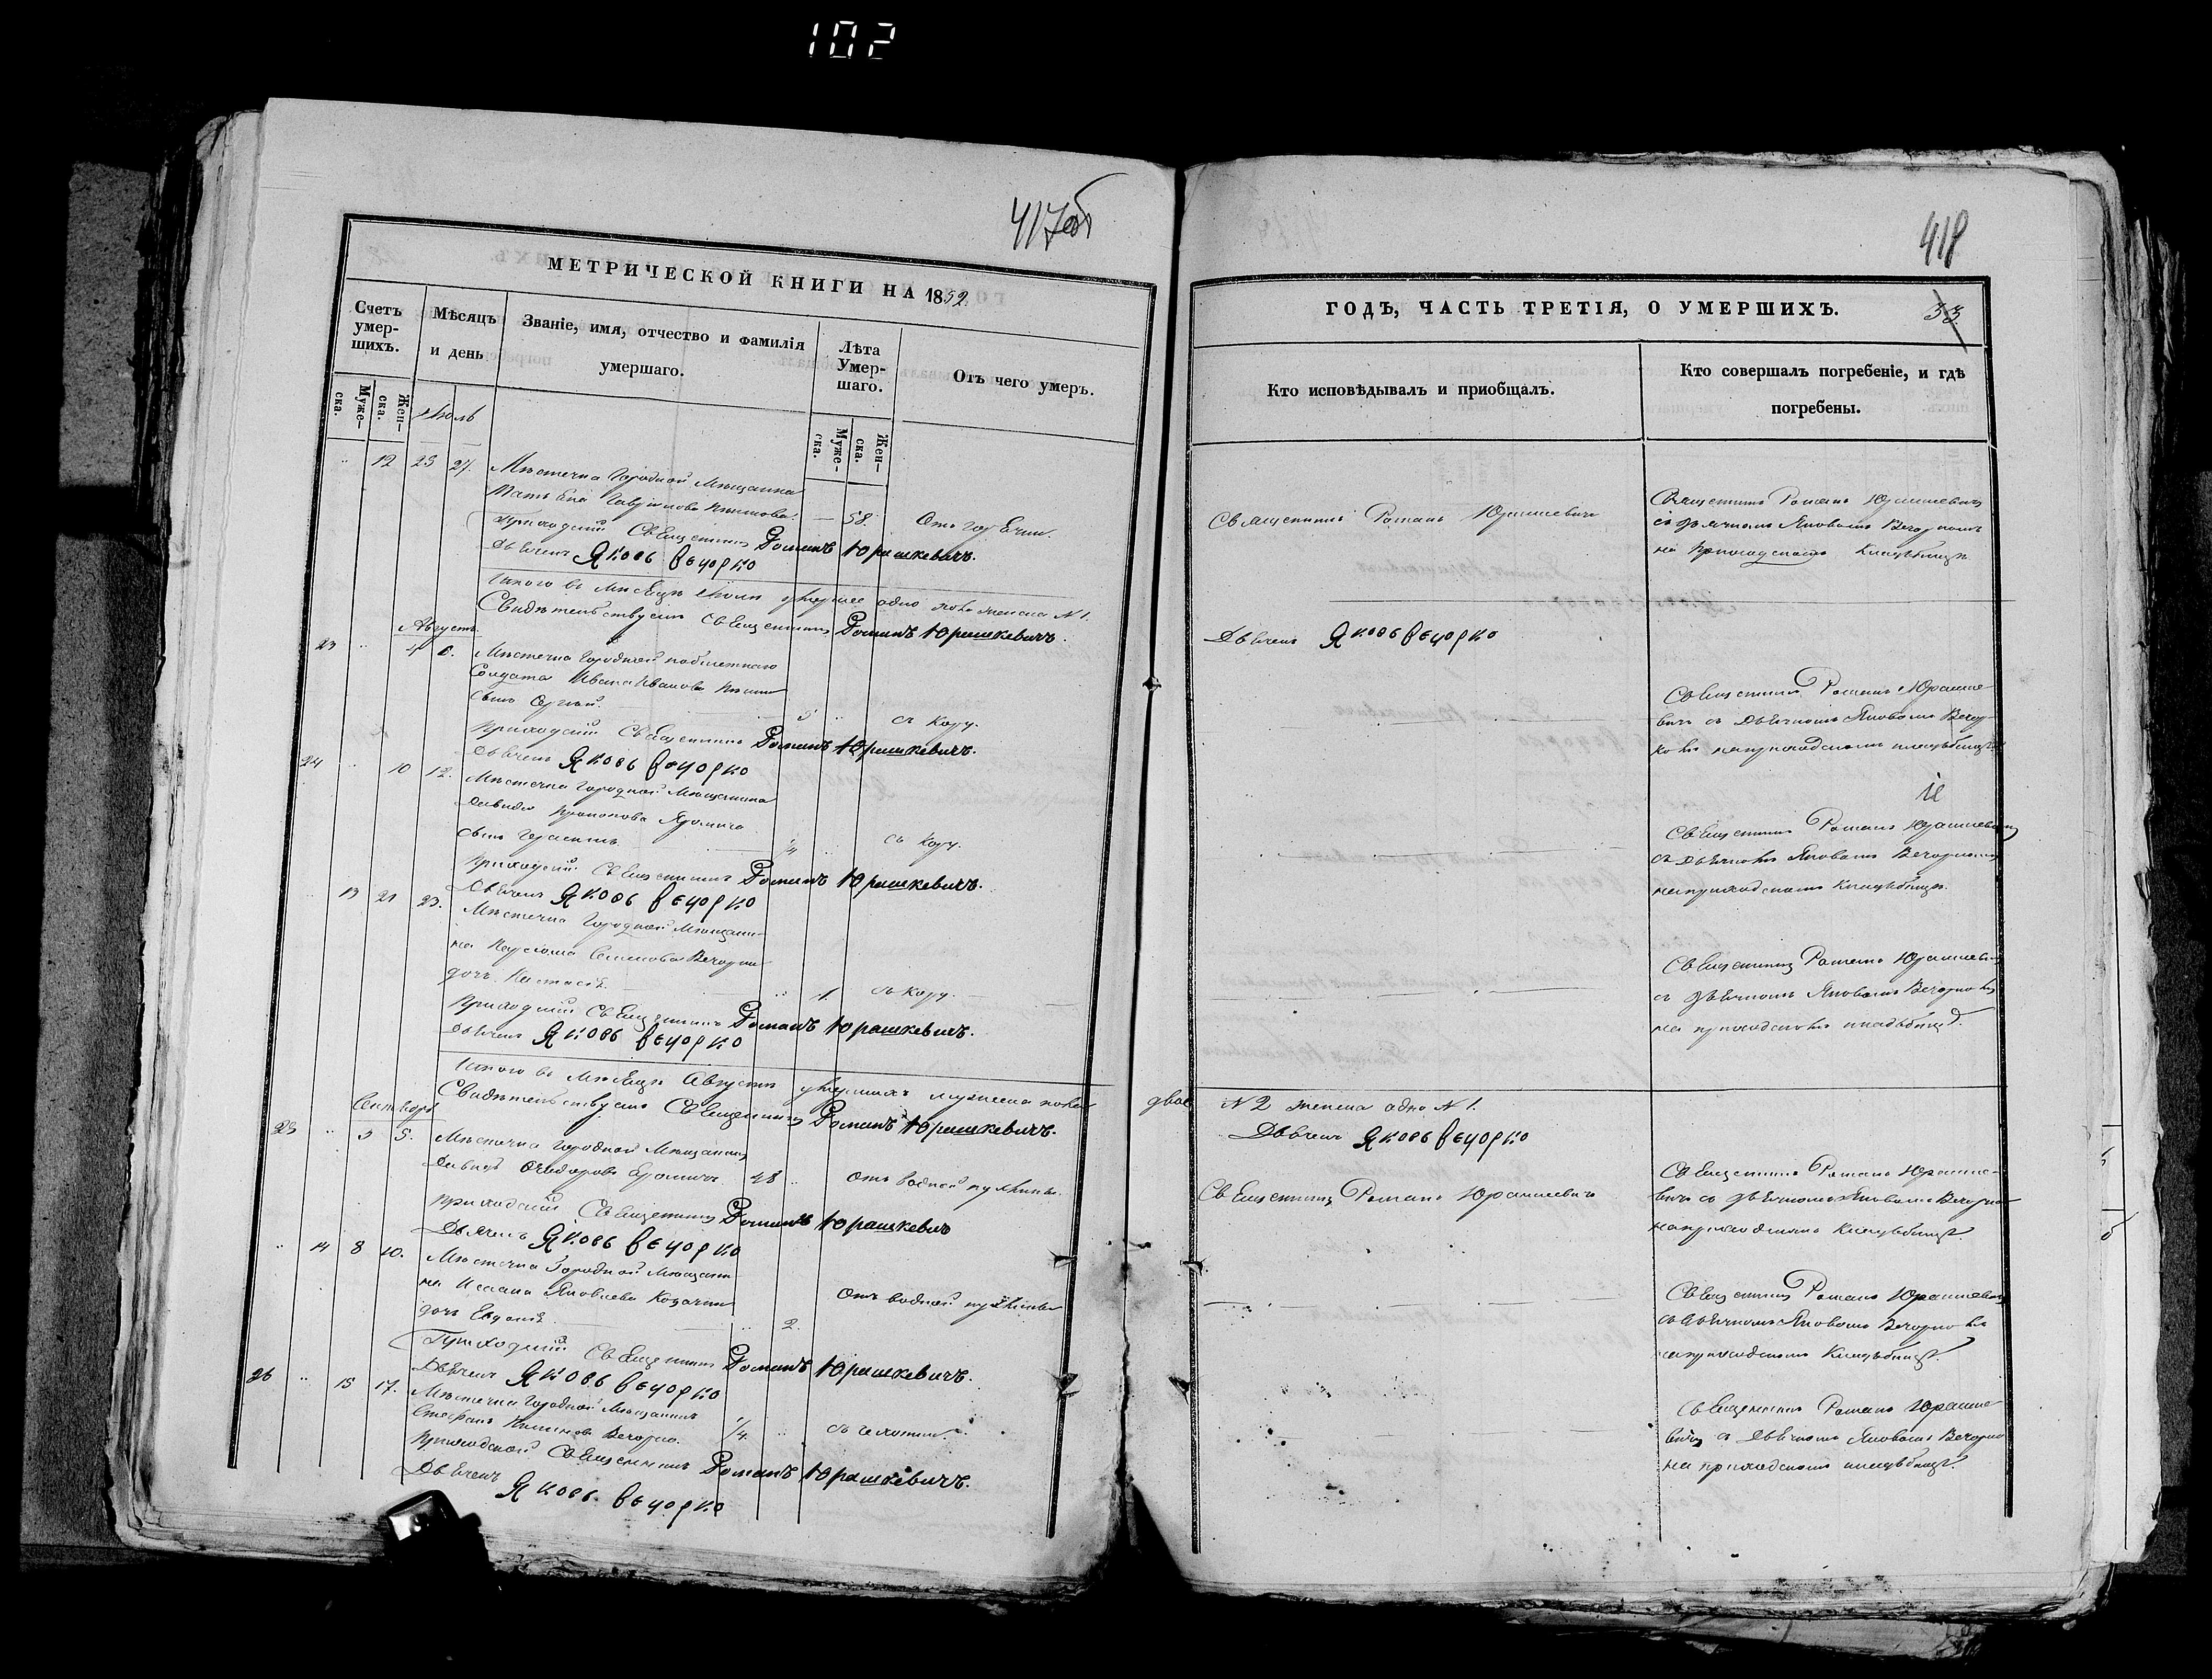 102
417об
МЕТРИЧЕСКОЙ КНИГИ НА 1852.
Счетъ умер-шихъ.
Мѣсяцъ и день
Званіе, имя, отчество и фамилія умершаго.
Лѣта Умер-шаго.
Отъ чего умеръ.
Муже-ска.
Жен-ска.
Муже-ска.
Жен-ска.
Июль
12 23 27. Мѣстечка Городной Мѣщанка
58.
Приходский Священникъ Романъ Юрашкевичъ.
Дьячекъ Яковъ Вечорко
Итого въ Мѣсяцѣ Июлѣ умершее одно пола женска N 1.
Свидѣтельствуемъ Священникъ Романъ Юрашкевичъ.
Августъ
23 4 6. Мѣстечка Городной
Солдата Ивана Иванова
сынъ Сергѣй. 5 съ Кору.
Приходский Священникъ Романъ Юрашкевичъ.
Дьячекъ Яковъ Вечорко
24 10 12. Мѣстечка Городной Мѣщанина
Давида Прокопова
сынъ Герасимъ 1/4 съ Кору.
Приходский Священникъ Романъ Юрашкевичъ.
Дьячекъ Яковъ Вечорко
13 21 23. Мѣстечка Городной Мѣщани-
на Семенова Вечорки
дочь 1. съ Кору.
Приходский Священникъ Романъ Юрашкевичъ.
Дьячекъ Яковъ Вечорко
Итого въ Мѣсяцѣ Августѣ умершихъ мужеска пола
Свидѣтельствуемъ Священникъ Романъ Юрашкевичъ.
Сентябрь
25 3 5. Мѣстечка Городной Мѣщанинъ
Давидъ Феодоровъ 48 Отъ водной пухлины.
Приходский Священникъ Романъ Юрашкевичъ
Дьячекъ Яковъ Вечорко
14 8 10. Мѣстечка Городной Мѣщани-
на Яковлева
дочь 2. Отъ водной пухлины
Приходский Священникъ Романъ Юрашкевичъ.
Дьячекъ Яковъ Вечорко
26 15 17. Мѣстечка Городной Мѣщанинъ
Стефанъ Вечорко. 1/4.
Приходской Священникъ Романъ Юрашкевичъ.
Дьячекъ
Яковъ Вечорко
418
ГОДЪ, ЧАСТЬ ТРЕТІЯ, О УМЕРШИХЪ.
33
Кто исповѣдывалъ и приобщалъ.
Кто совершалъ погребеніе, и гдѣ погребены.
Священникъ Романъ Юрашкевичъ
Священникъ Романъ Юрашкевичъ
съ дьячкомъ Яковомъ Вечоркомъ
на приходскомъ Кладьбищѣ
Дьячекъ Яковъ Вечорко
Священникъ Романъ Юрашке-
вичъ съ Дьячкомъ Яковомъ Вечор-
комъ на приходскомъ кладьбищѣ
Священникъ Романъ Юрашкевичъ
съ Дьячкомъ Яковомъ Вечоркомъ
на приходскомъ Кладьбищѣ.
Священникъ Романъ Юрашкевичъ
съ дьячкомъ Яковомъ Вечоркомъ
на приходскомъ кладьбищѣ.
двое N 2 женска одно N 1.
Дьячекъ Яковъ Вечорко
Священникъ Романъ Юрашкевичъ
Священникъ Романъ Юрашке-
вичъ съ дьячкомъ Яковомъ Вечорко
на приходскомъ Кладьбищѣ.
Священникъ Романъ Юрашкевичъ
съ дьячкомъ Яковомъ Вечоркомъ
на приходскомъ Кладьбищѣ.
Священникъ Романъ Юрашке-
вичъ съ Дьячкомъ Яковомъ Вечорко
на приходскомъ кладьбищѣ.